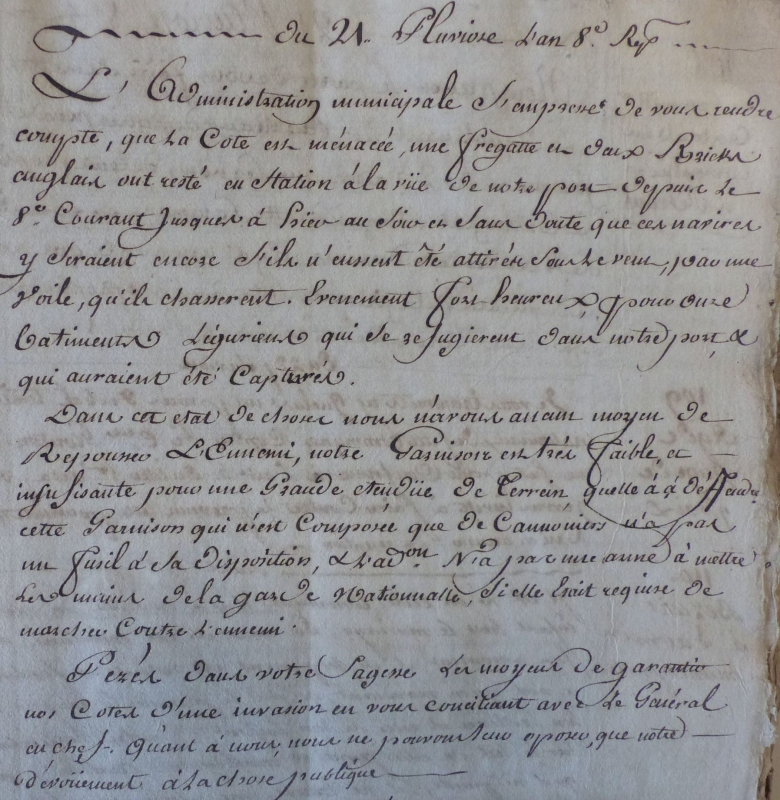 du 21. Pluviose L'an 8.e Rep.
L'Administration municipale S'empresse de vous rendre
compte, que La Cote est ménacée, une fregatte et deux Bricks
anglais ont resté en Station à la vüe de notre port depuis Le
8.e Courant Jusques à hier au Soir et Sans doute que ces navires
y Seraient encore S'ils n'eussent été attirés Sous Le vent, par une
Voile, qu'ils chasserent. Evenement fort heureux pour onze
Batiments Liguriens qui Se refugierent dans notre port &
qui auraient été Capturés.
Dans cet etat de choses nous n'avons aucun moyen de
Repousser L'Ennemi, notre Garnison est trés faible, et
insufisante pour une Grande etendüe de Terrein quelle à à déffendre
cette Garnison qui n'est Composée que de Cannoniers n'a pas
un fusil à Sa disposition, & L'ad.on N'a pas une arme à mettre
Les mains de la garde Nationnalle, Si elle était requise de
marcher Contre L'ennemi.
Pezés dans votre Sagesse Les moyens de garantir
nos Cotes d'une invasion en vous conciliant avec Le Genéral
en chef. Quant à nous, nous ne pouvons leur oposer, que notre
dévoüement à La chose publique